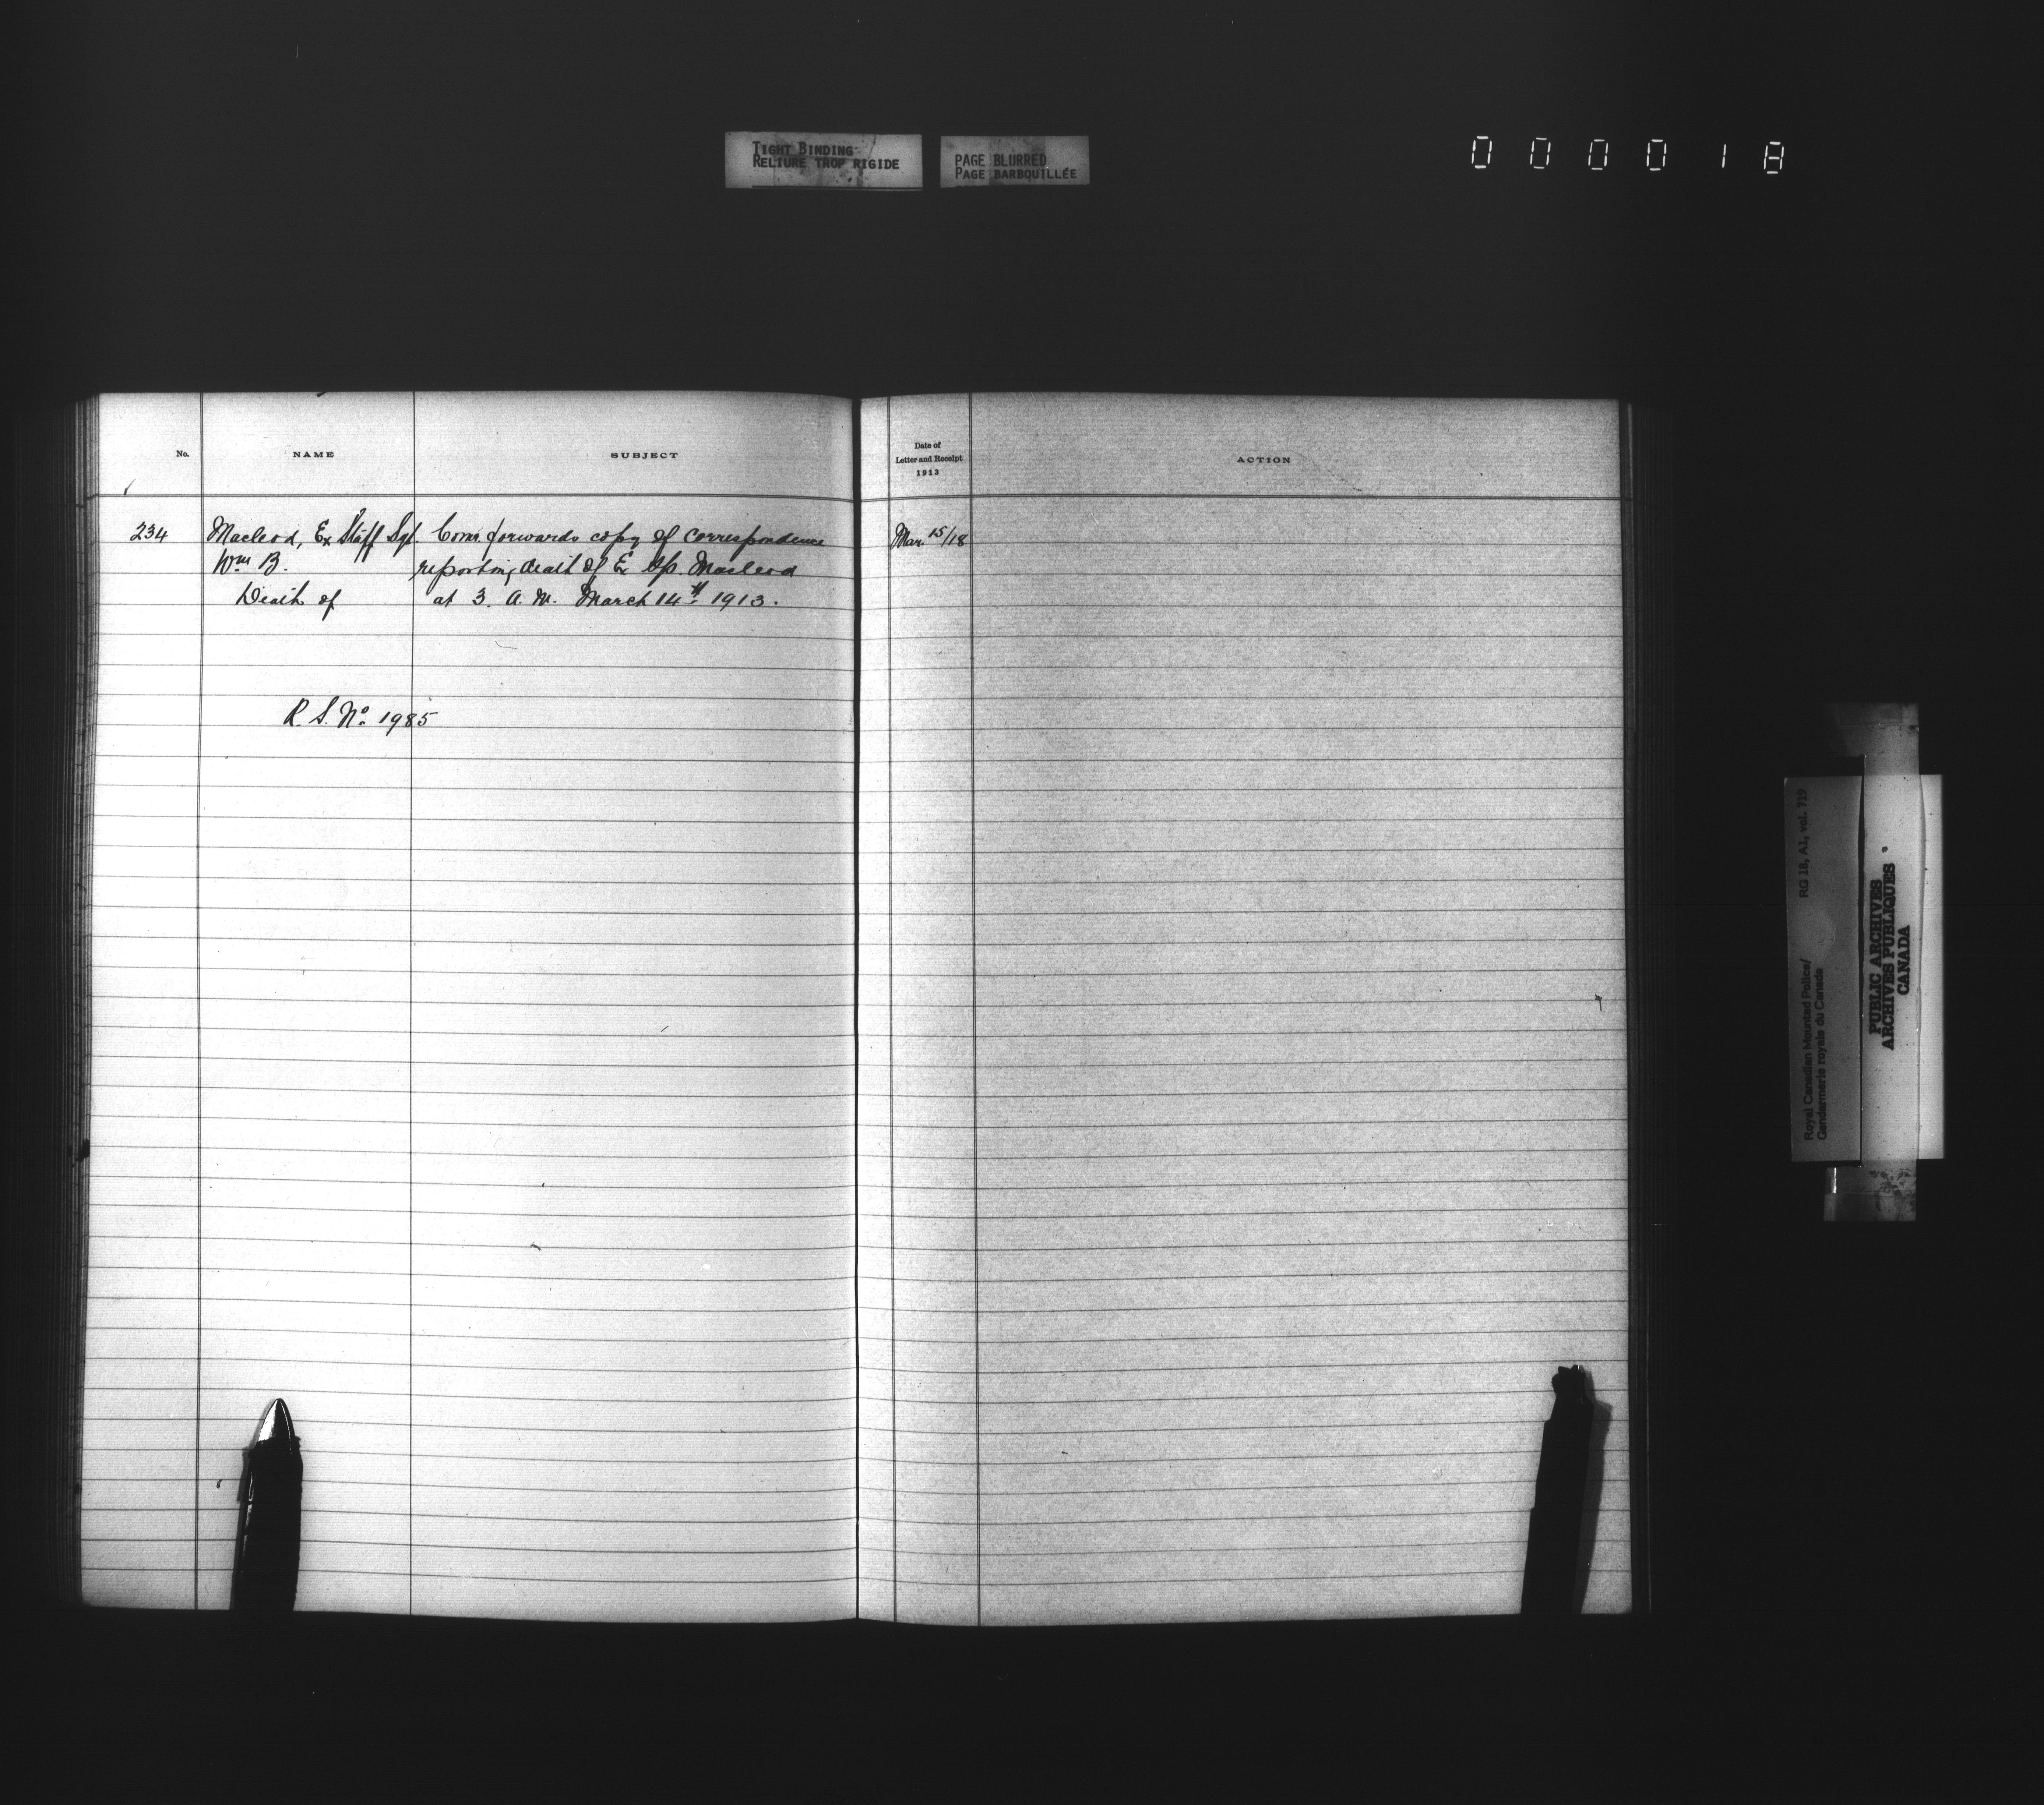 TIGHT BINDING
RELIURE TROP RIGIDE
PAGE BLURRED
PAGE BARBOUILLÉE
000018
No.
NAME
SUBJECT
Date of
Letter and Receipt
1913
ACTION
234
Macleod, Ex Staff Sgt.
Wm B.
Death of
Comr. forwards copy of correspondence
reporting death of Ex Macleod
at 3. A. M. March 14th 1913.
Mar. 15/18
R. S. No. 1985
RG 18, A1, vol. 719
Royal Canadian Mounted Police/
Gendarmerie royale du Canada
PUBLIC ARCHIVES
ARCHIVES PUBLIQUES
CANADA